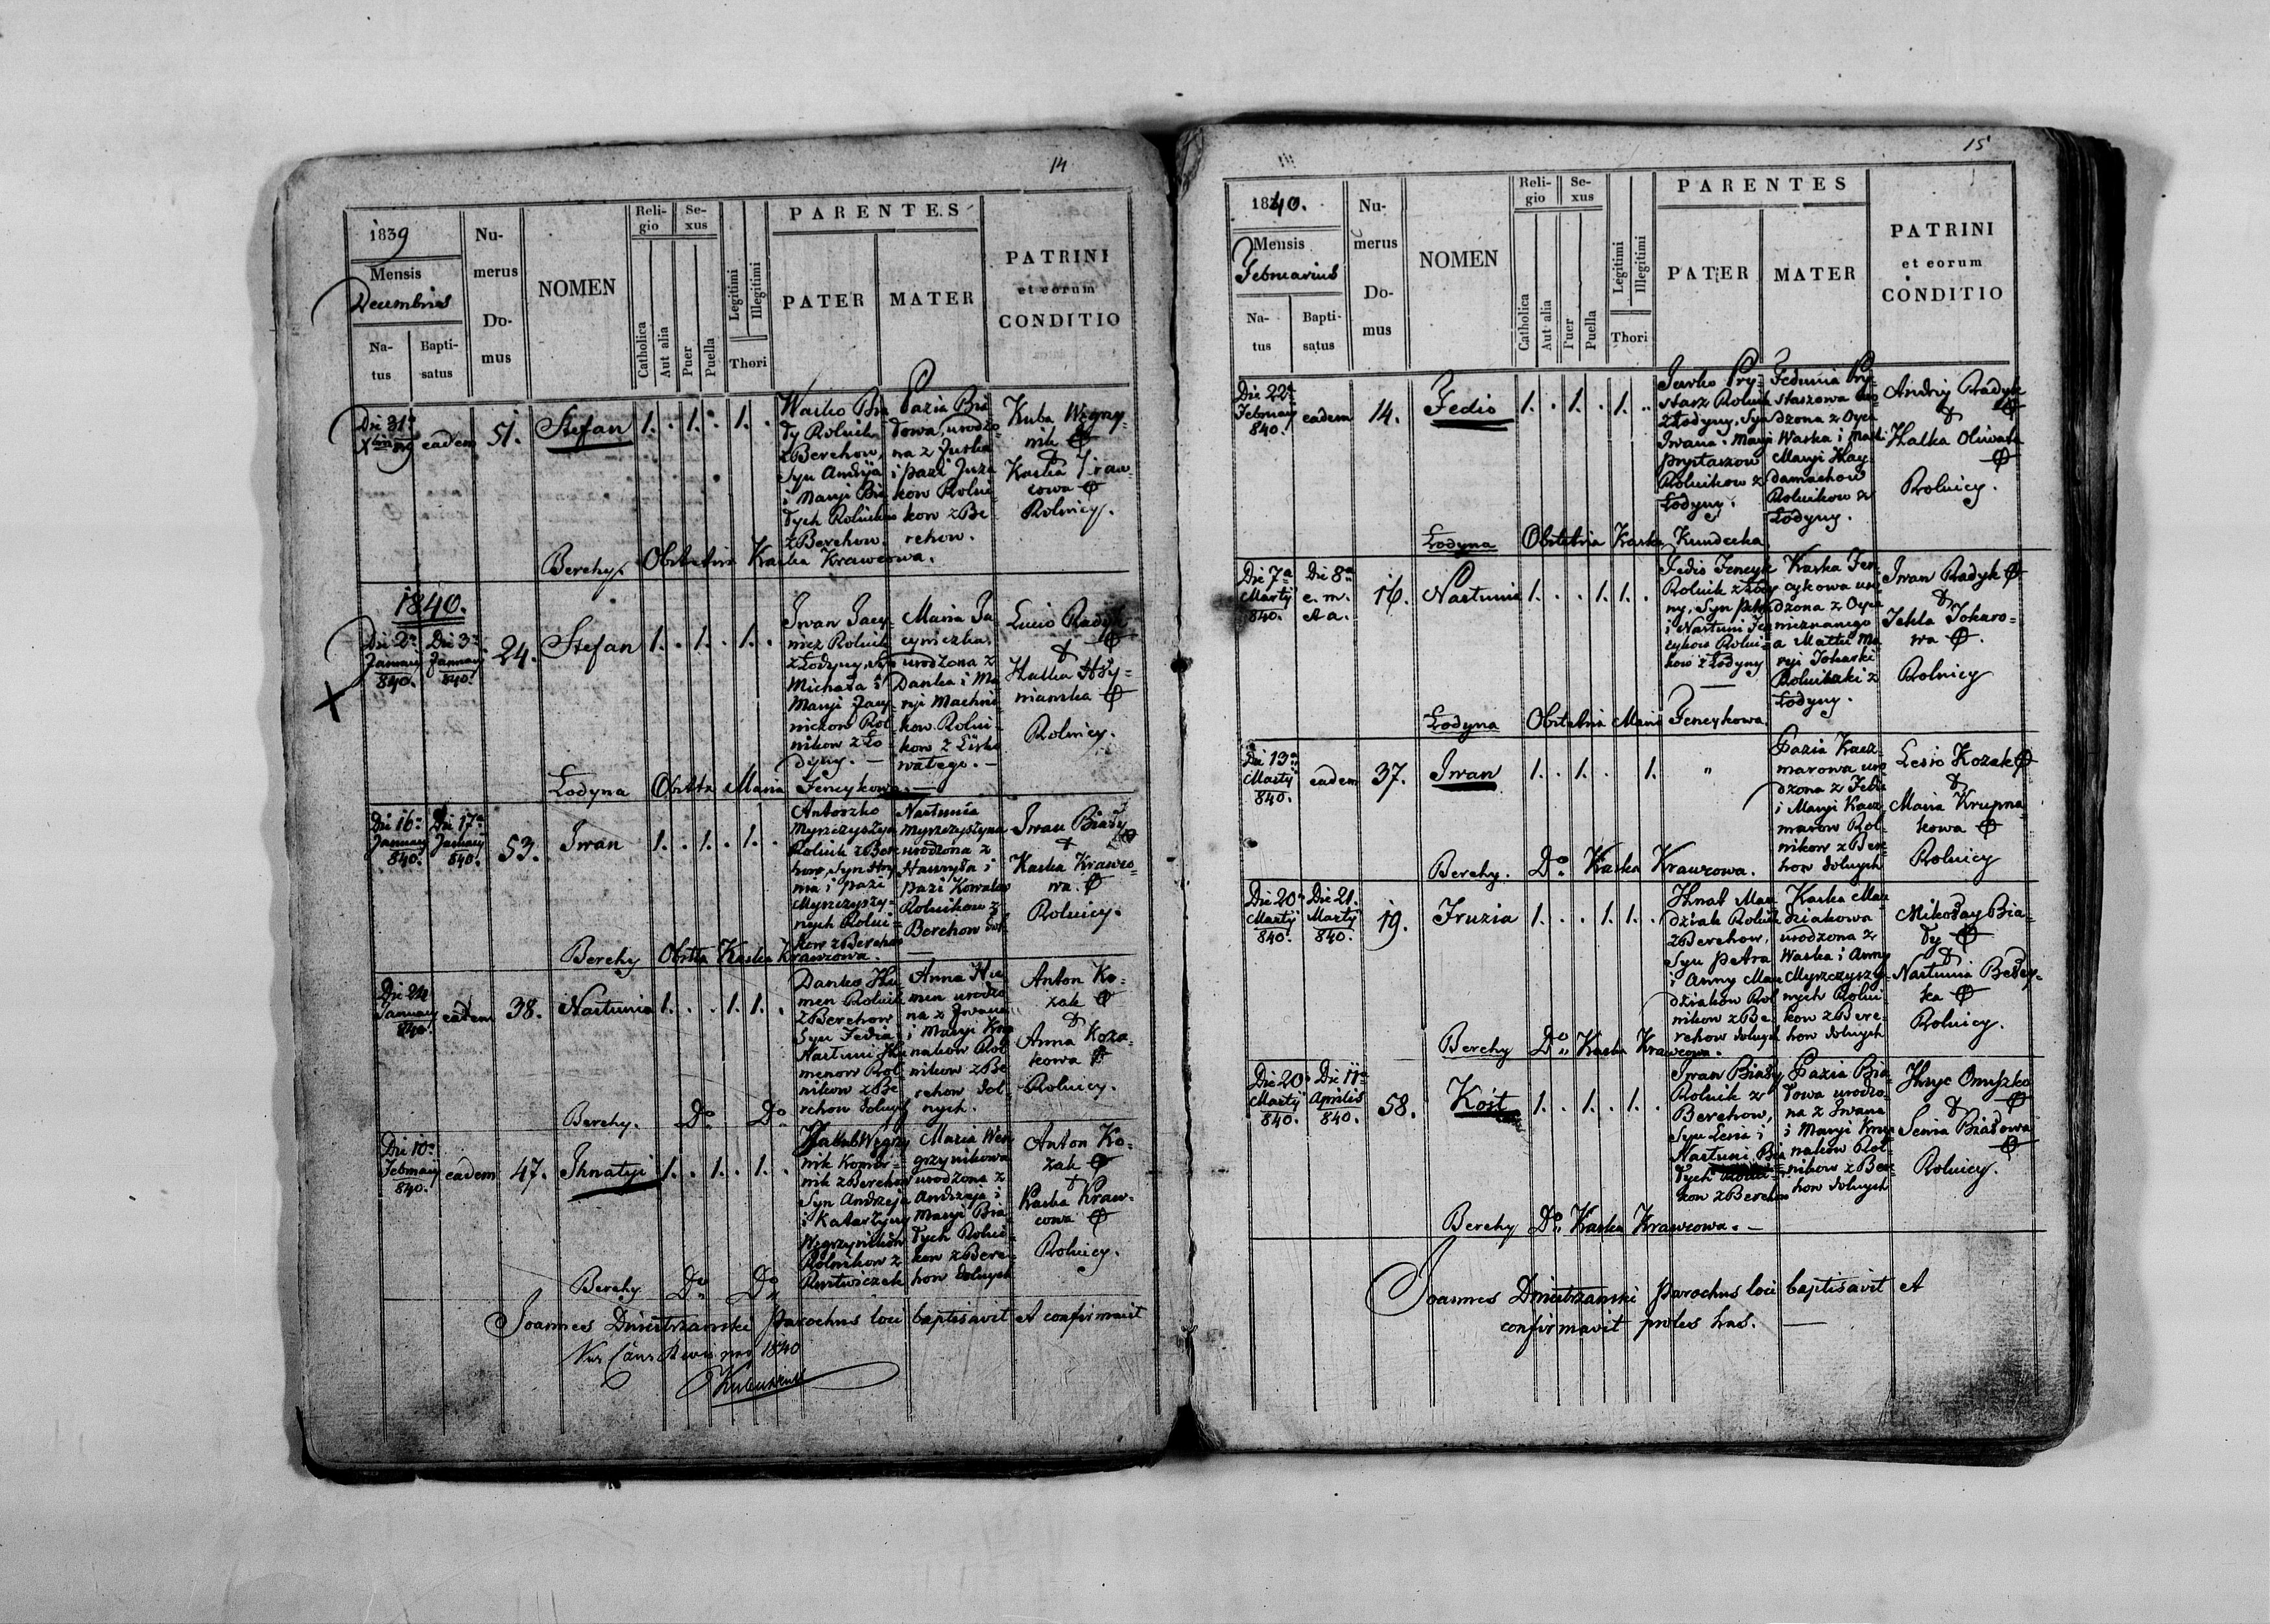 14
1839
Mensis
Decembris
Na-
tus
Bapti-
satus
Nu-
merus
Do-
mus
NOMEN
Reli-
gio
Catholica
Aut alia
Se-
xus
Puer
Puella
Legitimi
Illegitimi
Thori
PARENTES
PATER
MATER
PATRINI
et eorum
CONDITIO
Die 31a
eadem
51.
Stefan
1. . 1. . 1. .
Wasko Bia
ły Rolnik
z Berehow,
Syn Andrija
i Maryi Bia
łych Rolnikow
z Berehow.
Pazia Bia
łowa, urodzo
na z Jurka
i Pazi
kow Rolni
kow z Be
rehow.
Kuba Węgrzy-
nik
&
Kaska Kraw-
cowa
Rolnicy.
Berehy. Obstetrix Kaska Krawcowa.
1840.
Die 2a
January
840.
Die 3a
January
840.
24.
Stefan
1. . 1. . 1. .
Iwan Jacy-
nicz Rolnik
z Łodyny, Syn
Michała i
Maryi Jacy-
niczow Rol
nikow z Ło
dyny. —
Maria Ja
cyniczka,
urodzona z
Danka i Ma
ryi Machni
kow Rolni-
kow z Lisko
watego. —
Łucio Radyk
&
Halka
Rolnicy.
Łodyna Obsttx Maria Fencykowa. —
Die 16a
January
840.
Die 17a
January
840.
53.
Iwan
1. . 1. . 1. .
Antoszko
Myszczyszyn
Rolnik z Bere
how, Syn Hry
nia i Pazi
Myszczyszy-
nych Rolni-
kow z Berehow
Nastunia
Myszczyszyna
urodzona z
Hawryła i
Pazi Kowalow
Rolnikow z
Berehow dol
Iwan Biały
&
Kaska Krawco-
wa.
Rolnicy.
Berehy Obsttx Kaska Krawcowa. —
Die 24
January
840.
eadem
38.
Nastunia
1. . . 1. 1. .
Danko Hu
men Rolnik
z Berehow
Syn Fedia i
Nastuni Hu
menow Rol
nikow z Be
rehow dolnych
Anna Hu
men urodzo
na z Iwana
i Maryi Kru
nakow Rol
nikow z Be
rehow dol-
nych.
Anton Ko-
zak
&
Anna Koza-
kowa
Rolnicy.
Berehy. Do Do
Die 10a
February
840.
eadem
47.
Ihnatyi
1. . 1. . 1. .
Jakub Węgrzy
nik Komor-
nik z Berehow
Syn Andrzeja
i Katarzyny
Węgrzynikow
Rolnikow z
Maria Wen
grzynikowa
urodzona z
Andrzeja i
Maryi Bia-
łych Rolni-
kow z Bere-
how dolnych
Anton Ko-
zak
&
Kaska Kraw-
cowa
Rolnicy.
Berehy Do Do
Joannes Dmistrzanski Parochus loci baptisavit et confirmavit
1840
15
1840.
Mensis
Februarius
Na-
tus
Bapti-
satus
Nu-
merus
Do-
mus
NOMEN
Reli-
gio
Catholica
Aut alia
Se-
xus
Puer
Puella
Legitimi
Illegitimi
Thori
PARENTES
PATER
MATER
PATRINI
et eorum
CONDITIO
Die 22a
February
840.
eadem
14.
Fedio
1. . 1. . 1. .
Jurko Pry-
stasz Rolnik
z Łodyny, Syn
Iwana i Maryi
Prystaszow
Rolnikow z
Łodyny.
Fedunia Pry-
staszowa uro
dzona z Oyca
Waska i Matki
Maryi Hay
damachow
Rolnikow z
Łodyny.
Andrij Radyk
&
Halka Oliwata
Rolnicy.
Łodyna Obstetrix Kaska Kundecka
Die 7a
Martij
840.
Die 8a
e. m.
et a.
16.
Nastunia
1. . . 1. 1. .
Fedio Fencyk
Rolnik z Łody
ny, Syn Petra
i Nastuni Fen
cykow Rolni-
kow z Łodyny
Kaska Fen
cykowa uro
dzona z Oyca
nieznanego
a Matki Ma
ryi Tokarski
Rolniczki z
Łodyny.
Iwan Radyk
&
Tekla Tokaro-
wa
Rolnicy
Łodyna Obstetrix Maria Fencykowa.
Die 13a
Martij
840.
eadem
37.
Iwan
1. . 1. . 1.
"
Pazia Kacz-
marowa uro
dzona z Fedia
i Maryi Kacz
marow Rol-
nikow z Bere-
how dolnych
Lesio Kozak
&
Maria Krupna-
kowa
Rolnicy
Berehy. Do Kaska Krawcowa.
Die 20a
Martij
840.
Die 21.
Martij
840.
19.
Fruzia
1. . . 1. 1. .
Hnat Man
dziak Rolnik
z Berehow,
Syn Petra
i Anny Man
dziakow Rol
nikow z Be-
rehow dolnych
Kaska Man
dziakowa
urodzona z
Waska i Anny
Myszczyszy-
nych Rolni
kow z Bere-
how dolnych
Mikołay Bia-
ły
&
Nastunia Bełey-
ka
Rolnicy.
Berehy Do Kaska Krawcowa.
Die 20a
Martij
840.
Die 11a
Aprilis
840.
58.
Kost
1. . 1. . 1. .
Iwan Biały
Rolnik z
Berehow,
Syn Lesia i
Nastuni Bia
łych Rolni-
kow z Berehow
Pazia Bia-
łowa urodzo
na z Iwana
i Maryi Krup
nakow Rol-
nikow z Bere-
how dolnych
Hryc Onyszko
&
Senia Białowa
Rolnicy.
Berehy Do Kaska Krawcowa. —
Joannes Dmistrzanski Parochus loci baptisavit et
confirmavit proles has. —